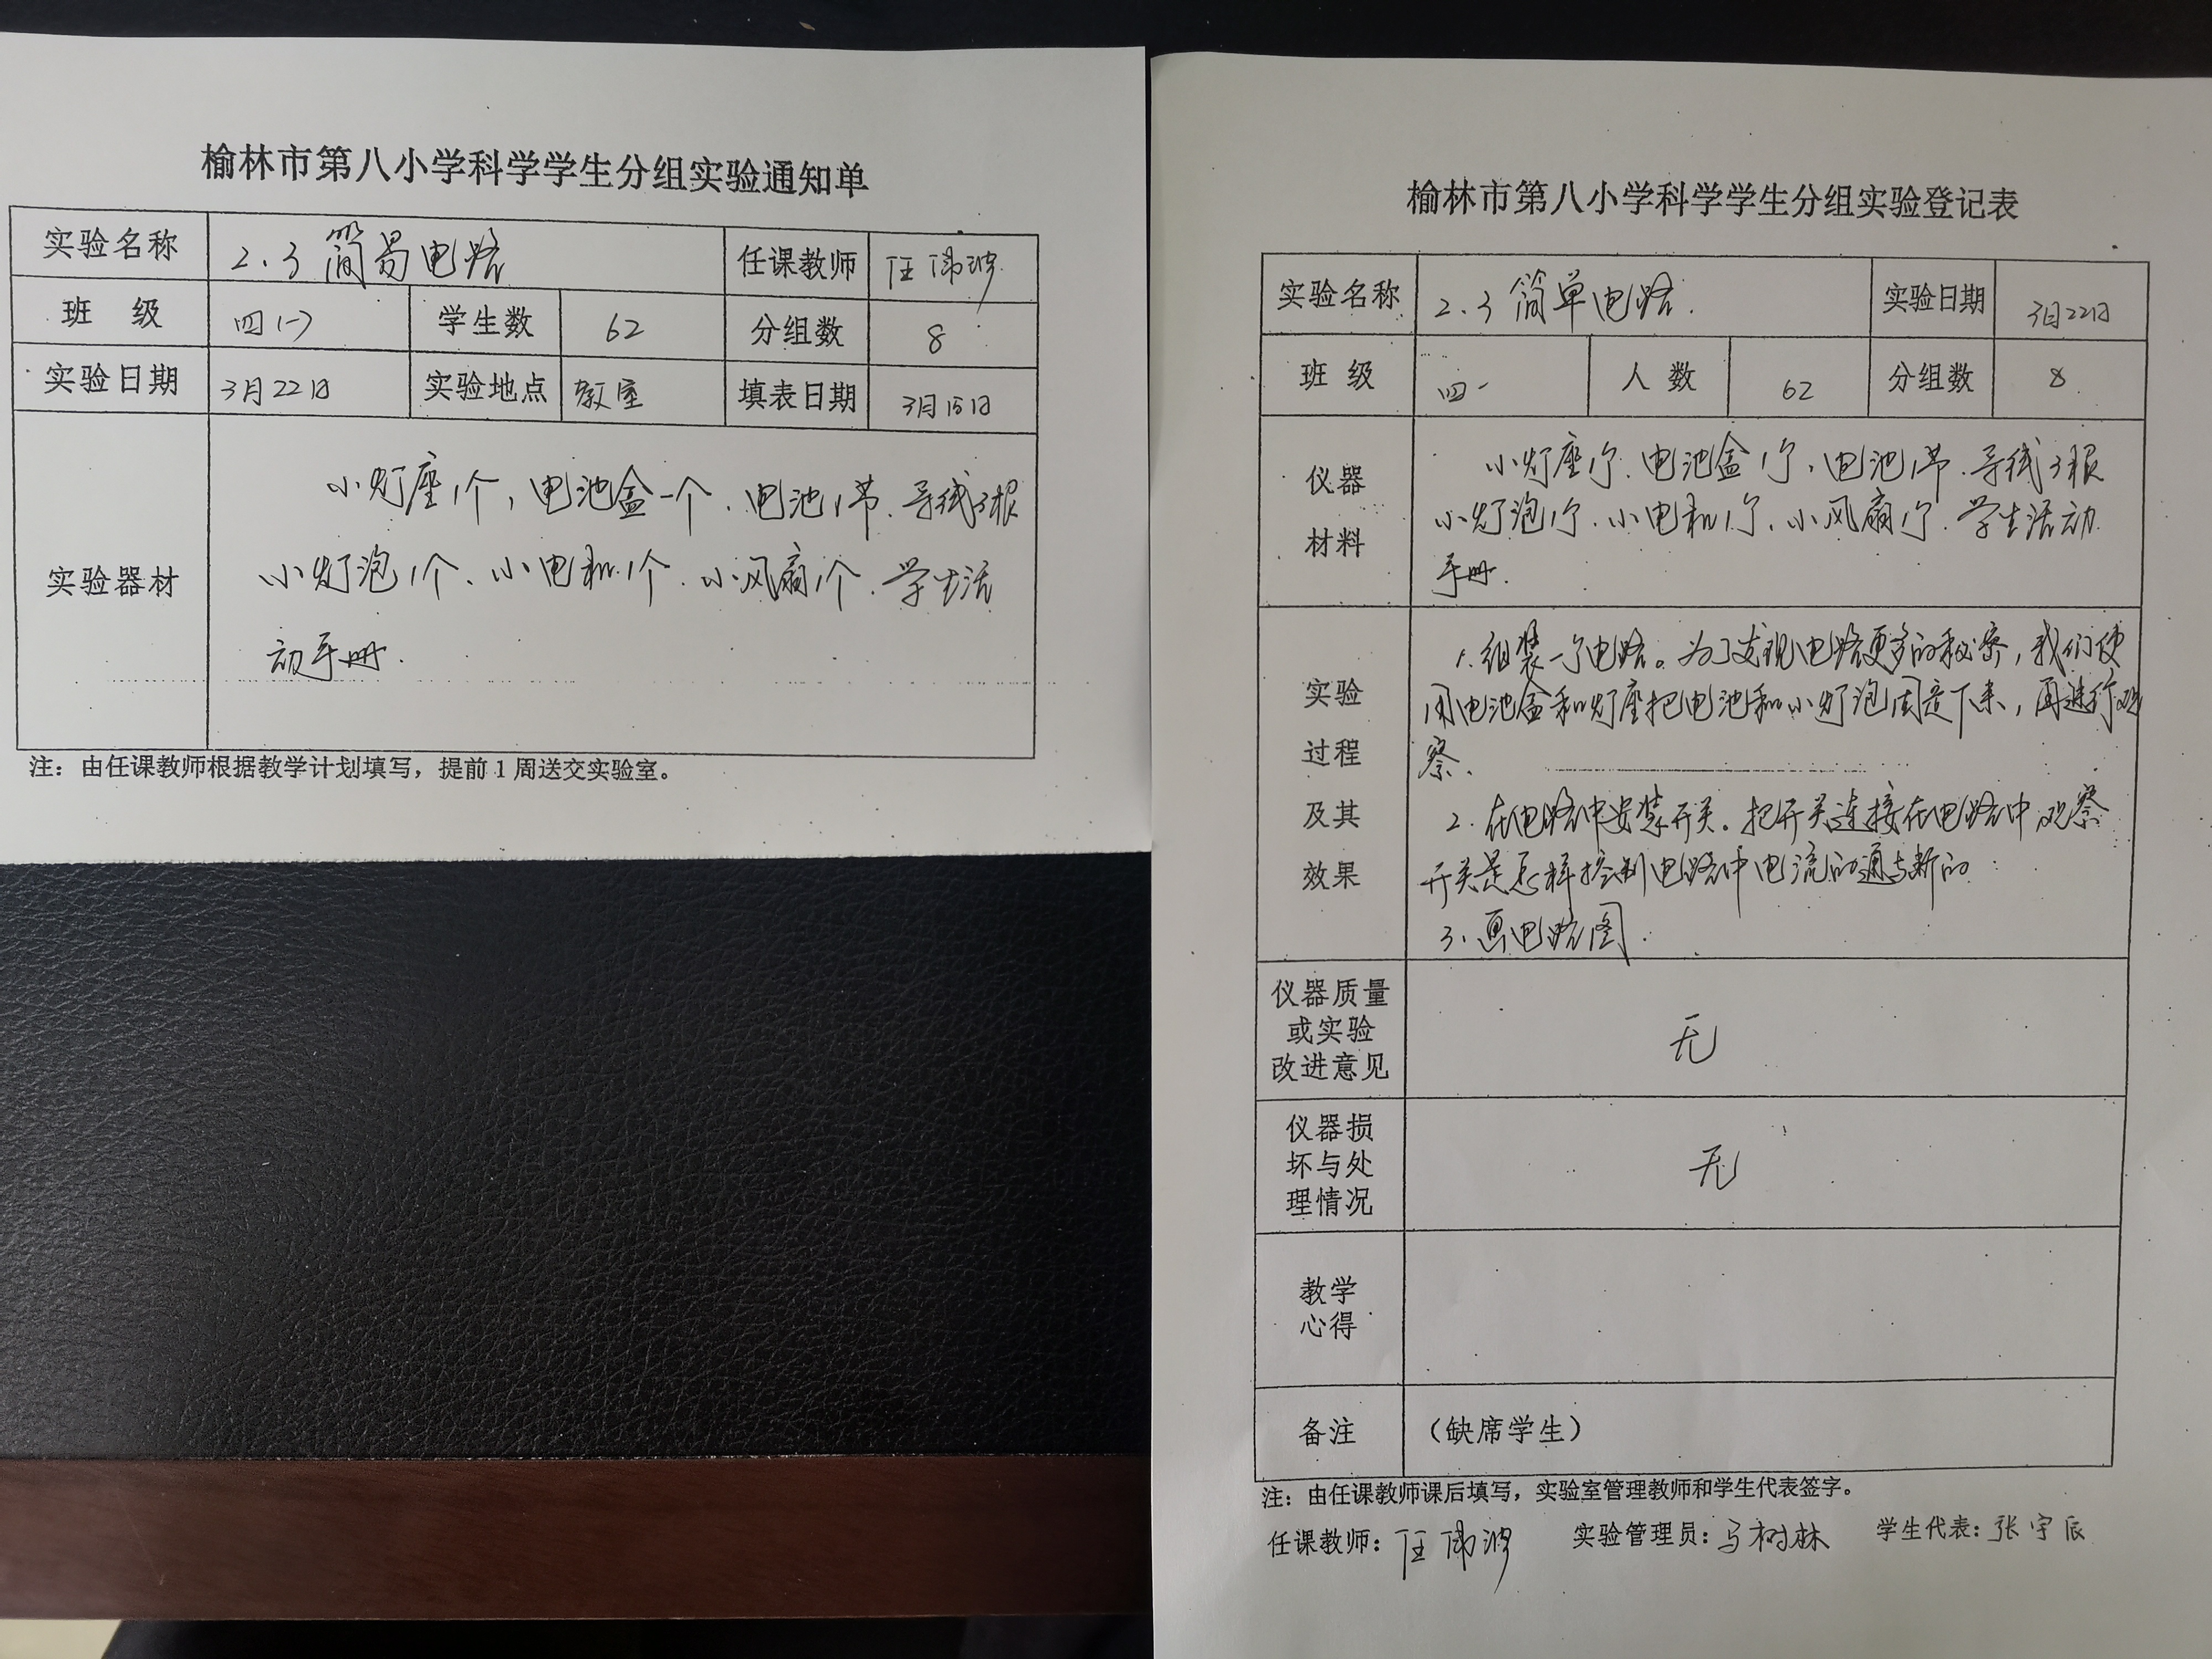 榆林市第八小学科学学生分组实验通知单
实验名称 2.3 简易电路 任课教师
班 级 四(一) 学生数 62 分组数 8
实验日期 3月22日 实验地点 教室 填表日期 3月15日
实验器材
小灯座1个,电池盒一个、电池1节、导线3根
小灯泡1个、小电机1个、小风扇1个、学生活
动手册.
注:由任课教师根据教学计划填写,提前1周送交实验室。
榆林市第八小学科学学生分组实验登记表
实验名称 2.3 简单电路. 实验日期 3月22日
班 级 四一 人 数 62 分组数 8
仪器
材料
小灯座1个、电池盒1个,电池1节、导线3根
小灯泡1个、小电机1个、小风扇1个、学生活动
手册.
实验
过程
及其
效果
1.组装一个电路。为了发现电路更多的秘密,我们使
用电池盒和灯座把电池和小灯泡固定下来,再进行观
察.
2.在电路中安装开关。把开关连接在电路中观察
开关是怎样控制电路中电流的通与断的
3.画电路图.
仪器质量
或实验
改进意见
无
仪器损
坏与处
理情况
无
教学
心得
备注 (缺席学生)
注:由任课教师课后填写,实验室管理教师和学生代表签字。
任课教师: 实验管理员:马树林 学生代表:张宇辰